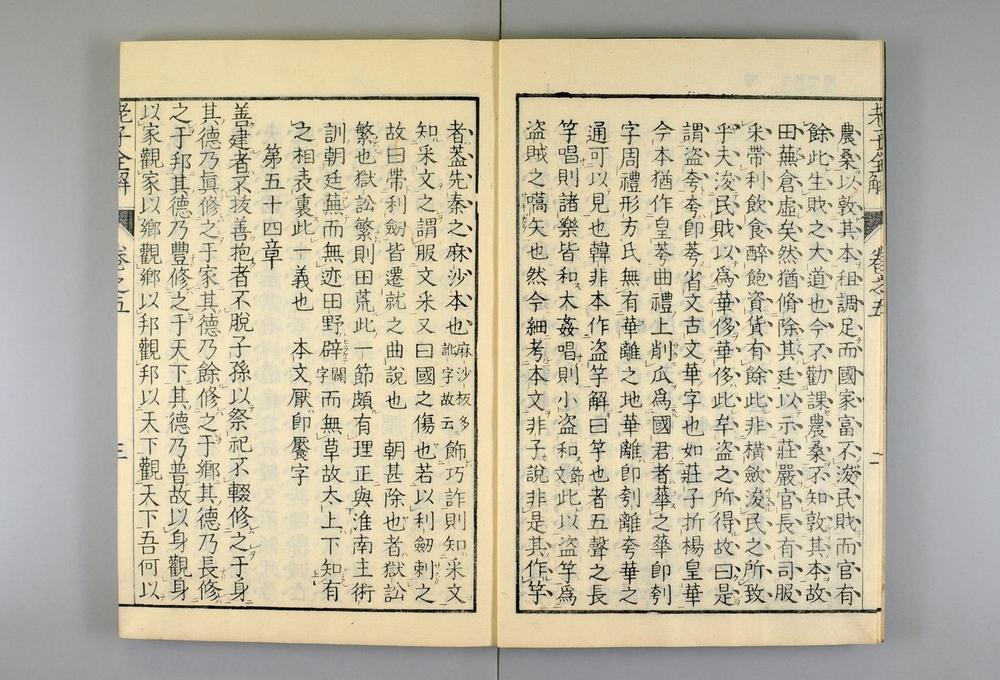 農桑以敦其本租調足而國家富不浚民財而官有
餘此生財之大道也今不勸課農桑不知敦其本故
田蕪倉虛矣然猶脩除其廷以示莊嚴官長有司服
采帶利飲食醉飽資貨有餘此非橫歛浚民之所致
乎夫浚民財以為華侈華侈此牟盜之所得故曰是
謂盜夸夸卽荂省文古文華字也如莊子折楊皇華
今本猶作皇荂曲禮上削瓜爲國君者華之華卽刳
字周禮形方氏無有華離之地華離卽刳離夸華之
通可以見也韓非本作盜竽解曰竽也者五聲之長
竽唱則諸樂皆和大姦唱則小盜和文節此以盜竽爲
盜賊之嚆矢也然今細考本文非子說非是其作竽
老子全解 卷之五 二
者蓋先秦之麻沙本也麻沙板多訛字故云飾巧詐則知采文
知采文之謂服文采又曰國之傷也若以利劒刺之
故曰帶利劒皆遷就之曲說也 朝甚除也者獄訟
繁也獄訟繁則田荒此一節頗有理正與淮南主術
訓朝廷蕪而無迹田野辟闢字而無草故太上下知有
之相表裏此一義也 本文厭卽饜字
第五十四章
善建者不拔善抱者不脫子孫以祭祀不輟修之于身
其德乃眞修之于家其德乃餘修之于鄉其德乃長修
之于邦其德乃豐修之于天下其德乃普故以身觀身
以家觀家以鄉觀鄉以邦觀邦以天下觀天下吾何以
老子全解 卷之五 三